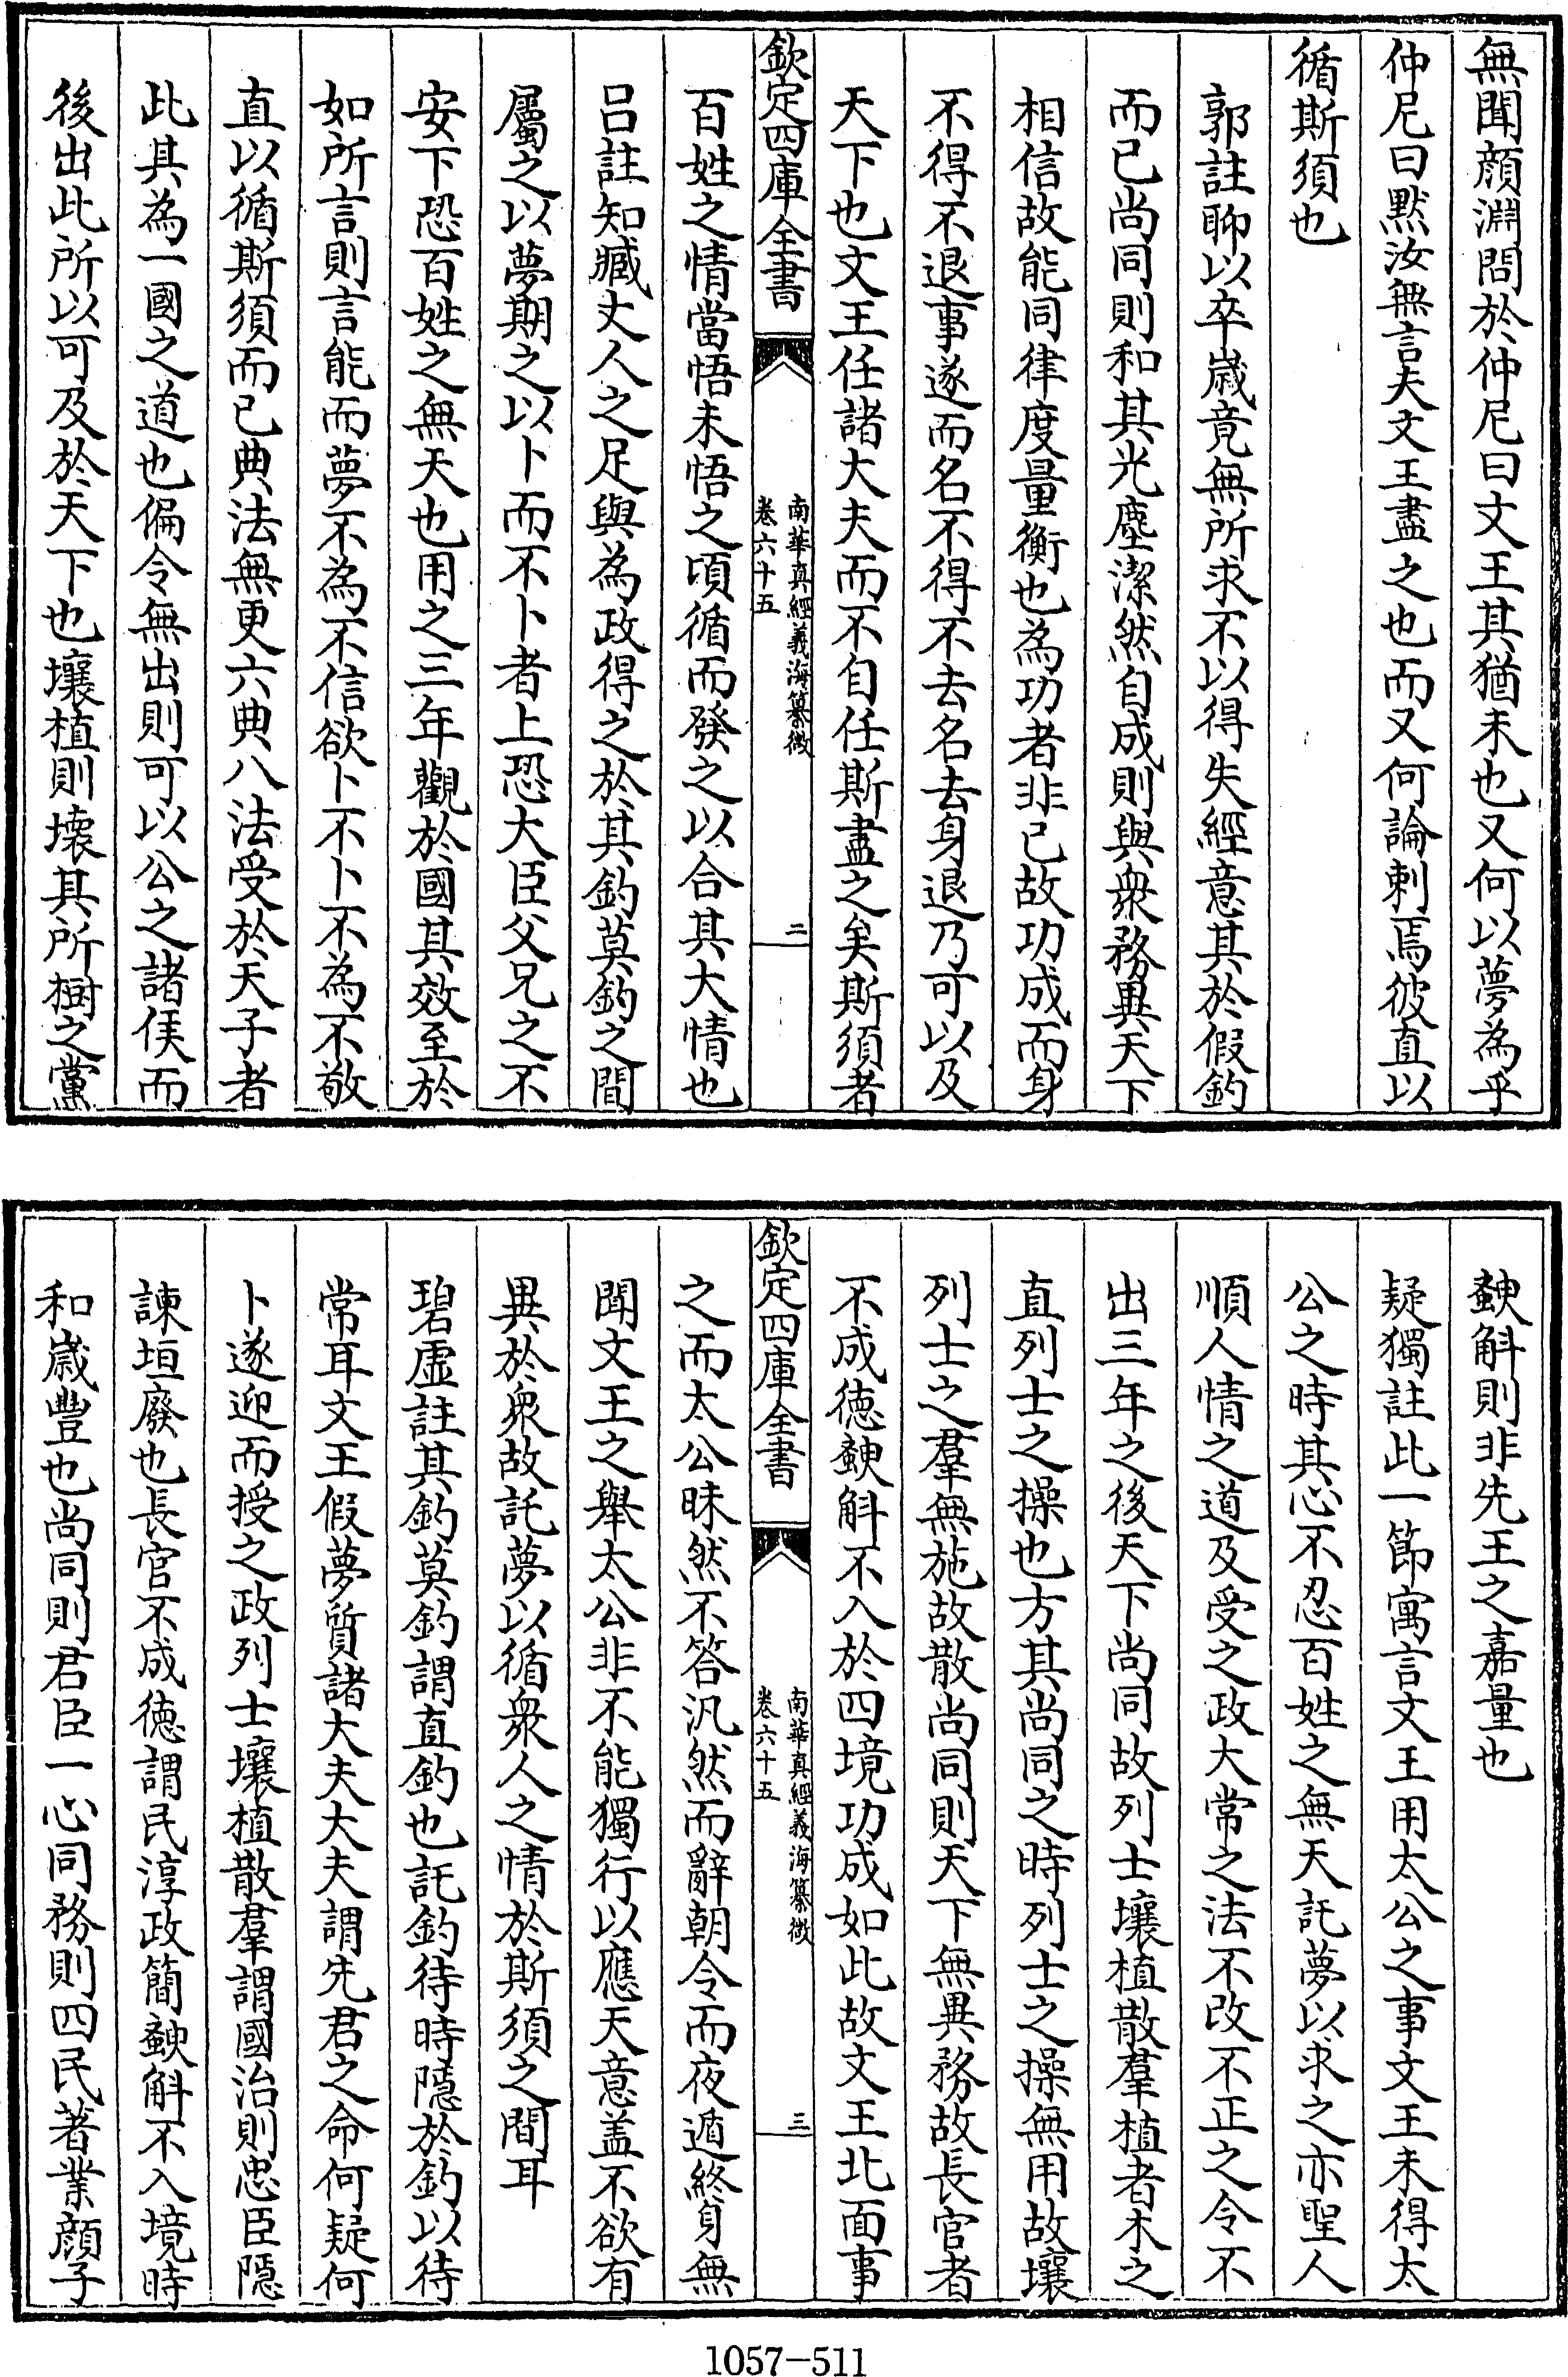 無聞顔淵問於仲尼曰文王其猶未也又何以夢為乎
仲尼曰黙汝無言夫文王盡之也而又何論刺焉彼直以
循斯須也
郭註聊以卒歳竟無所求不以得失經意其於假釣
而已尚同則和其光塵潔然自成則與衆務異天下
相信故能同律度量衡也為功者非己故功成而身
不得不退事遂而名不得不去名去身退乃可以及
天下也文王任諸大夫而不自任斯盡之矣斯須者
欽定四庫全書
南華真經義海纂微
卷六十五
二
百姓之情當悟未悟之頃循而發之以合其大情也
吕註知臧丈人之足與為政得之於其釣莫釣之間
屬之以夢期之以卜而不卜者上恐大臣父兄之不
安下恐百姓之無天也用之三年觀於國其效至於
如所言則言能而夢不為不信欲卜不卜不為不敬
直以循斯須而已典法無更六典八法受於天子者
此其為一國之道也偏令無出則可以公之諸侯而
後出此所以可及於天下也壤植則壊其所樹之黨
斔斛則非先王之嘉量也
疑獨註此一節寓言文王用太公之事文王未得太
公之時其心不忍百姓之無天託夢以求之亦聖人
順人情之道及受之政大常之法不改不正之令不
出三年之後天下尚同故列士壤植散羣植者木之
直列士之操也方其尚同之時列士之操無用故壤
列士之羣無施故散尚同則天下無異務故長官者
不成徳斔斛不入於四境功成如此故文王北面事
欽定四庫全書
南華真經義海纂微
卷六十五
三
之而太公昧然不答汎然而辭朝令而夜遁終身無
聞文王之舉太公非不能獨行以應天意盖不欲有
異於衆故託夢以循衆人之情於斯須之間耳
碧虚註其釣莫釣謂直釣也託釣待時隱於釣以待
常耳文王假夢質諸大夫大夫謂先君之命何疑何
卜遂迎而授之政列士壤植散羣謂國治則忠臣隱
諫垣廢也長官不成徳謂民淳政簡斔斛不入境時
和歳豐也尚同則君臣一心同務則四民著業顔子
1057-511